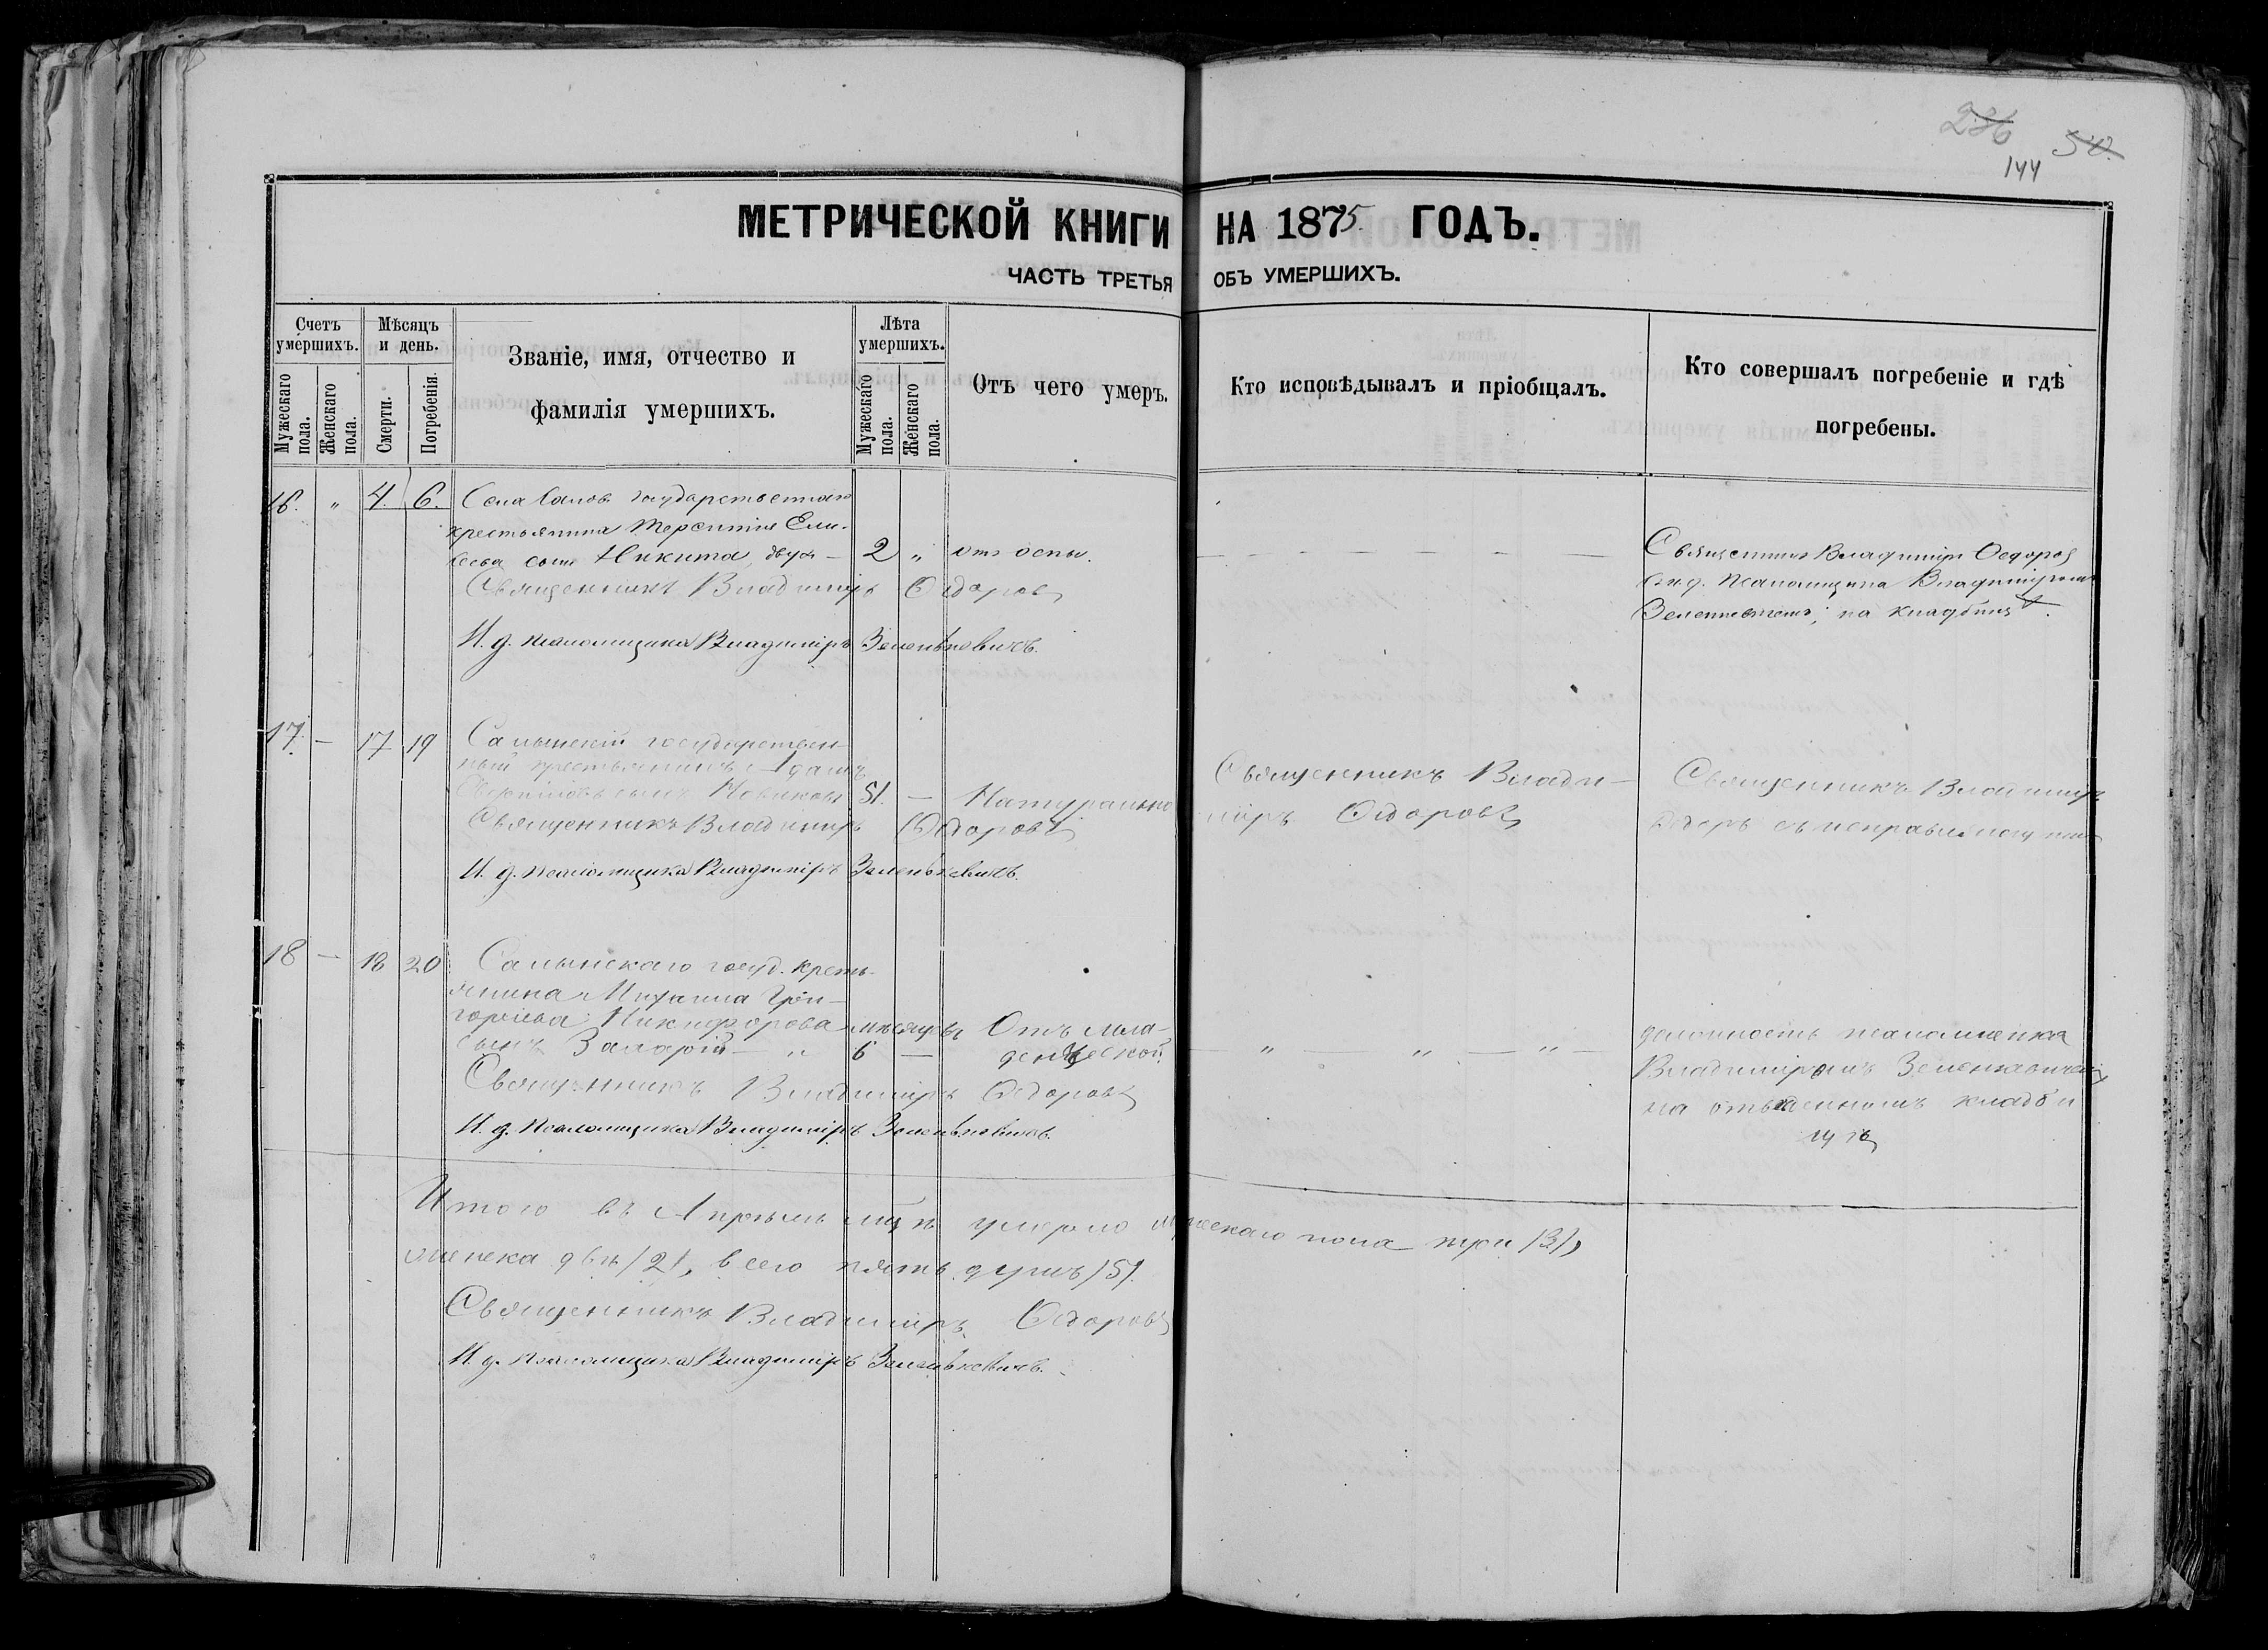 236 50.
144
МЕТРИЧЕСКОЙ КНИГИ НА 1875 ГОДЪ.
ЧАСТЬ ТРЕТЬЯ ОБЪ УМЕРШИХЪ.
Счетъ умершихъ.
Мужескаго пола.
Женскаго пола.
Мѣсяцъ и день.
Смерти.
Погребенія.
Званіе, имя, отчество и
фамилія умершихъ.
Лѣта умершихъ.
Мужескаго пола.
Женскаго пола.
Отъ чего умеръ.
Кто исповѣдывалъ и пріобщалъ.
Кто совершалъ погребеніе и гдѣ
погребены.
16. " 4. 6. Села государственнаго
крестьянина Терентія Ели-
сѣева сынъ Никита, двух- 2 " отъ оспы.
Священникъ Владиміръ Ѳедоровъ
И. д. псаломщика Владиміръ Зеленкевичъ.
Священникъ Владиміръ Ѳедоровъ
съ и. д. псаломщика Владиміромъ
Зеленкевичемъ, на кладбищѣ.
17. — 17 19 Салынскій государствен-
ный крестьянинъ Адамъ
сынъ Новиковъ 51. — Натурально
Священникъ Владиміръ Ѳедоровъ
И. д. псаломщика Владиміръ Зеленкевичъ.
Священникъ Влади-
міръ Ѳедоровъ
Священникъ Владиміръ
18 — 18 20 Салынскаго госуд. крест-
янина Михаила Гри-
горьева Никифорова мѣсяцевъ Отъ мла-
сынъ " 6 — денческой.
Священникъ Владиміръ Ѳедоровъ
И. д. Псаломщика Владиміръ Зеленкевичъ.
— " — " — " —
должность псаломщика
Владиміромъ Зеленкевичемъ
на отведенномъ кладби
щѣ
Итого въ Апрѣлѣ мцѣ умерло мужескаго пола три /3/,
женска двѣ /2/, всего пять душъ /5/.
Священникъ Владиміръ Ѳедоровъ
И. д. псаломщика Владиміръ Зеленкевичъ.